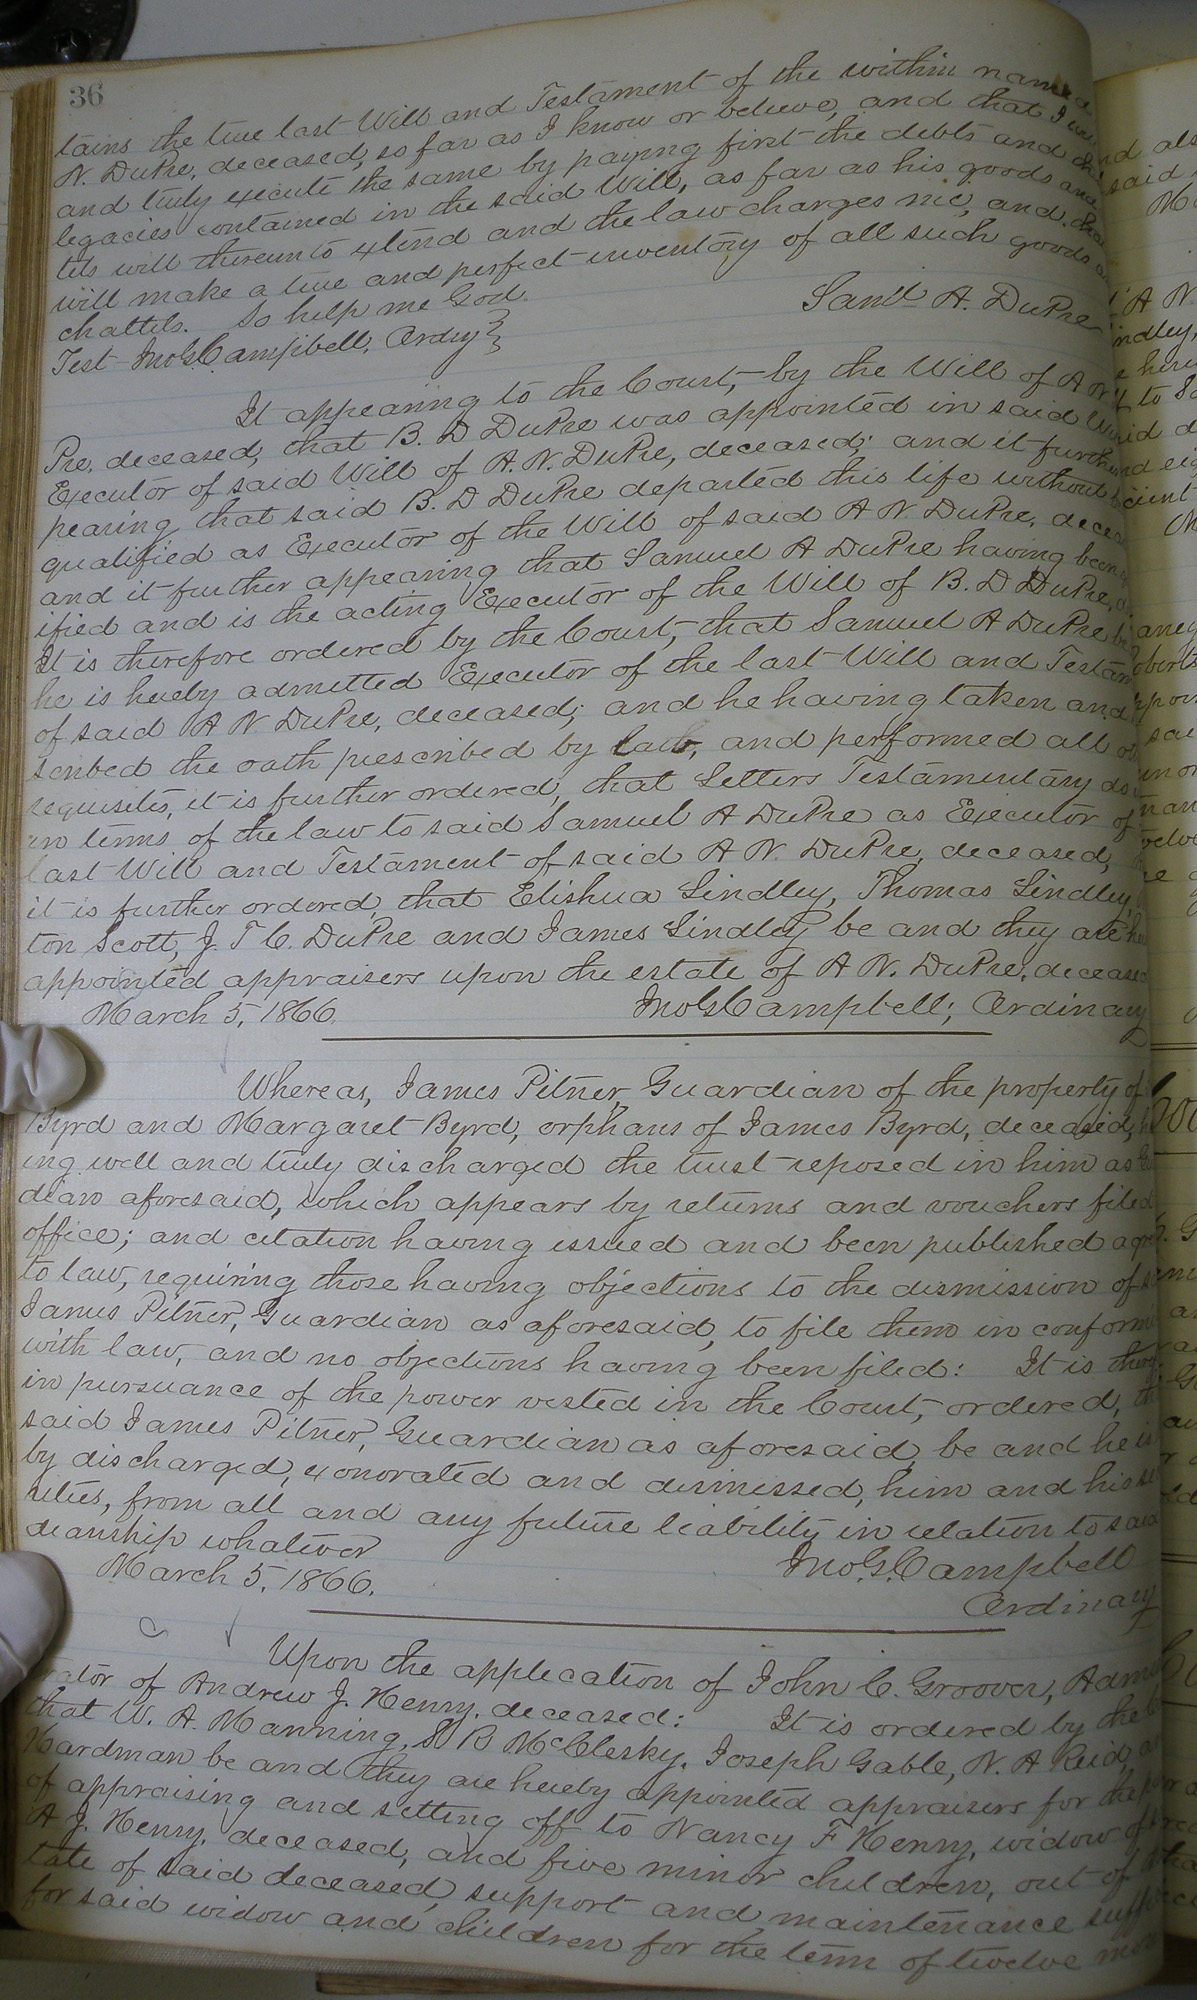 36
tains the true last Will and Testament of the within named
N. DuPre, deceased, so far as I know or believe, and that I will
and truly execute the same by paying first the debts and
legacies contained in the said Will, as far as his goods and chat
tels will thereunto extend and the law charges me; and that
will make a true and perfect inventory of all such goods a
chattels. So help me God.
Saml A. DuPre
Test Jno G. Campbell, Ordny
It appearing to the Court, by the Will of A N
Pre, deceased, that B. D DuPre was appointed in said Will
Executor of said Will of A. N. DuPre, deceased; and it further
pearing that said B. D DuPre departed this life without
qualified as Executor of the Will of said A N DuPre, decea
and it further appearing that Samuel A DuPre having been
ified and is the acting Executor of the Will of B. D DuPre,
It is therefore ordered by the Court, that Samuel A DuPre be
he is hereby admitted Executor of the last Will and Testam
of said A N DuPre, deceased; and he having taken and
scribed the oath prescribed by law, and performed all ot
requisites, it is further ordered, that Letters Testamentary do
in terms of the law to said Samuel A DuPre as Executor of
last Will and Testament of said A N. DuPre, deceased,
it is further ordered, that Elishua Lindley, Thomas Lindley,
ton Scott, J. T C. DuPre and James Lindley be and they are he
appointed appraisers upon the estate of A N. DuPre, deceased
March 5, 1866. Jno G. Campbell, Ordinary
Whereas, James Pitner, Guardian of the property of
Byrd and Margaret Byrd, orphans of James Byrd, deceased, h
ing well and truly discharged the trust reposed in him as Gu
dian aforesaid, which appears by returns and vouchers filed
office; and citation having issued and been published agre
to law, requiring those having objections to the dismission of s
James Pitner, Guardian as aforesaid, to file them in conformi
with law, and no objections having been filed: It is there
in pursuance of the power vested in the Court, ordered, th
said James Pitner, Guardian as aforesaid, be and he is
by discharged, exonorated and dismissed, him and his se
rities, from all and any future liability in relation to said
dianship whatever
March 5, 1866. Jno. G. Campbell
Ordinary
Upon the application of John C. Groover, Admi
rator of Andrew J. Henry, deceased: It is ordered by the
that W. A. Manning, S R McClesky, Joseph Gable, N. A Reid, a
Hardman be and they are hereby appointed appraisers for the p
of appraising and setting off to Nancy F Henry, widow of
A J. Henry, deceased, and five minor children, out of
tate of said deceased, support and maintenance suff
for said widow and children for the term of twelve mo